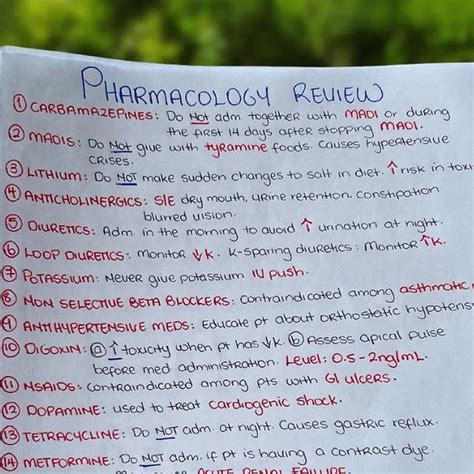 PHARMACOLOGY REVIEW
① CARBAMAZEPINES: Do Not adm together with MAOI or during
the first 14 days after stopping MAOI.
② MAOIS: Do Not give with tyramine foods. Causes hypertensive
crises.
③ LITHIUM: Do NOT make sudden changes to salt in diet. ↑ risk in toxi
④ ANTICHOLINERGICS: S/E dry mouth, urine retention. constipation
blurred vision.
⑤ DIURETICS: Adm. in the morning to avoid ↑ urination at night.
⑥ LOOP DIURETICS: monitor ↓K. K-sparing diuretics: Monitor ↑K.
⑦ POTASSIUM: Never give potassium IV push.
⑧ NON SELECTIVE BETA BLOCKERS: Contraindicated among asthmatic
⑨ ANTIHYPERTENSIVE MEDS: Educate pt about orthostatic hypotens
⑩ DIGOXIN: ⓐ ↑ toxicity when pt has ↓K. ⓑ Assess apical pulse
before med administration. Level: 0.5-2ng/mL.
⑪ NSAIDS: contraindicated among pts with GI ulcers.
⑫ DOPAMINE: used to treat cardiogenic shock.
⑬ TETRACYCLINE: Do NOT adm. at night. Causes gastric reflux.
⑭ METFORMINE: Do NOT adm. if pt is having a contrast dye.
ACUTE RENAL FAILURE.